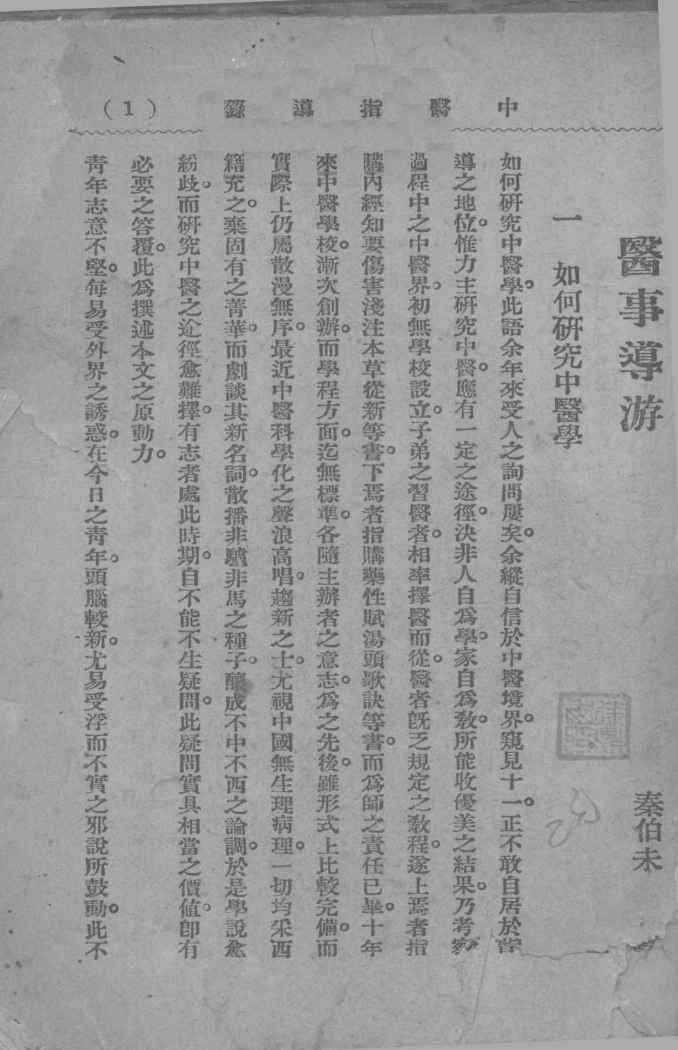 中醫指導錄
(1)
醫事導游
秦伯未
一 如何研究中醫學
如何研究中醫學。此語余年來受人之詢問屢矣。余縱自信於中醫境界。窺見十一。正不敢自居於
導之地位。惟力主研究中醫。應有一定之途徑。決非人自爲學。家自爲敎。所能收優美之結果。乃考察
過程中之中醫界。初無學校設立。子弟之習醫者。相率擇醫而從。醫者旣乏規定之敎程。遂上焉者指
購內經知要傷害淺注本草從新等書。下焉者指購藥性賦湯頭歌訣等書。而爲師之責任已畢。十年
來中醫學校。漸次創辦。而學程方面。迄無標準。各隨主辦者之意志。爲之先後。雖形式上比較完備。而
實際上仍屬散漫無序。最近中醫科學化之聲浪高唱。趨新之士。尤視中國無生理病理。一切均采西
籍充之。棄固有之菁華。而劇談其新名詞。散播非驢非馬之種子。釀成不中不西之論調。於是學說愈
紛歧。而研究中醫之途徑愈難擇。有志者處此時期。自不能不生疑問。此疑問實具相當之價值。卽有
必要之答覆。此爲撰述本文之原動力。
靑年志意不堅。每易受外界之誘惑。在今日之靑年。頭腦較新。尤易受浮而不實之邪說所鼓動。此不